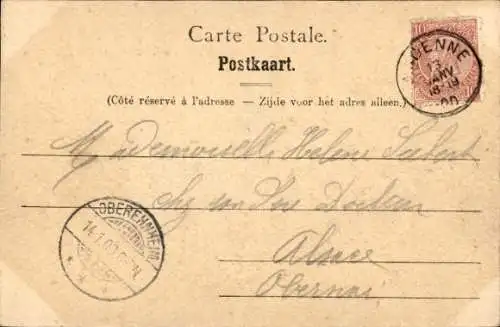 Carte Postale.
Postkaart.
(Côté réservé à l'adresse — Zijde voor het adres alleen.)
10
ANDENNE
13
JANV
18-19
Mademoiselle Helene
Alsace
Obernai
OBEREHNHEIM
14.1.00